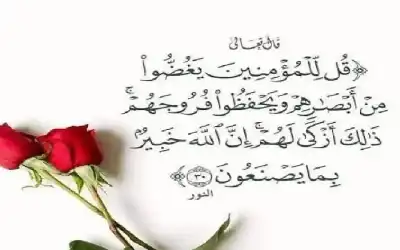 قال تعالى
﴿قُل لِّلْمُؤْمِنِينَ يَغُضُّوا۟
مِنْ أَبْصَـٰرِهِمْ وَيَحْفَظُوا۟ فُرُوجَهُمْ ۚ
ذَٰلِكَ أَزْكَىٰ لَهُمْ ۗ إِنَّ ٱللَّهَ خَبِيرٌۢ
بِمَا يَصْنَعُونَ ٣٠﴾
النور